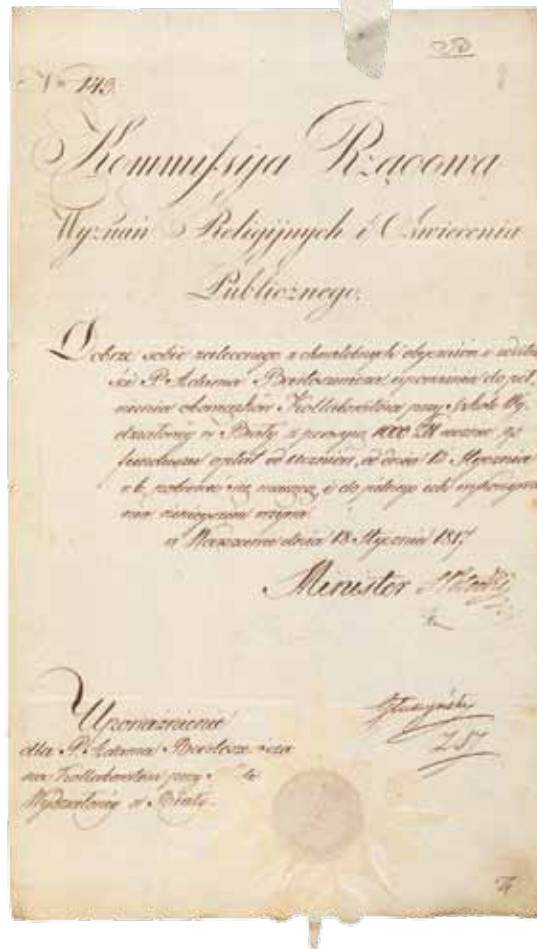 N 149.
Kommissyja Rządowa
Wyznań Religijnych i Oświecenia
Publicznego.
Dobrze sobie zaleconego z chwalebnych obyczajów i
P. Adama Bartoszewicza upoważnia do peł,
nienia obowiązków Kollaboratora przy szkole Wy,
działowéy w Biały z pensyą 1000 Zł. roczną z
funduszu opłat od uczniów, od dnia 12 Stycznia
r. b. pobierać się mającą, i do pełnego ich
wzywa.
w Warszawie dnia 13 Stycznia 1817
Minister
Upoważnienie
dla P. Adama Bartoszewicza
na Kollaboratora przy
Wydziałowéy w Biały.